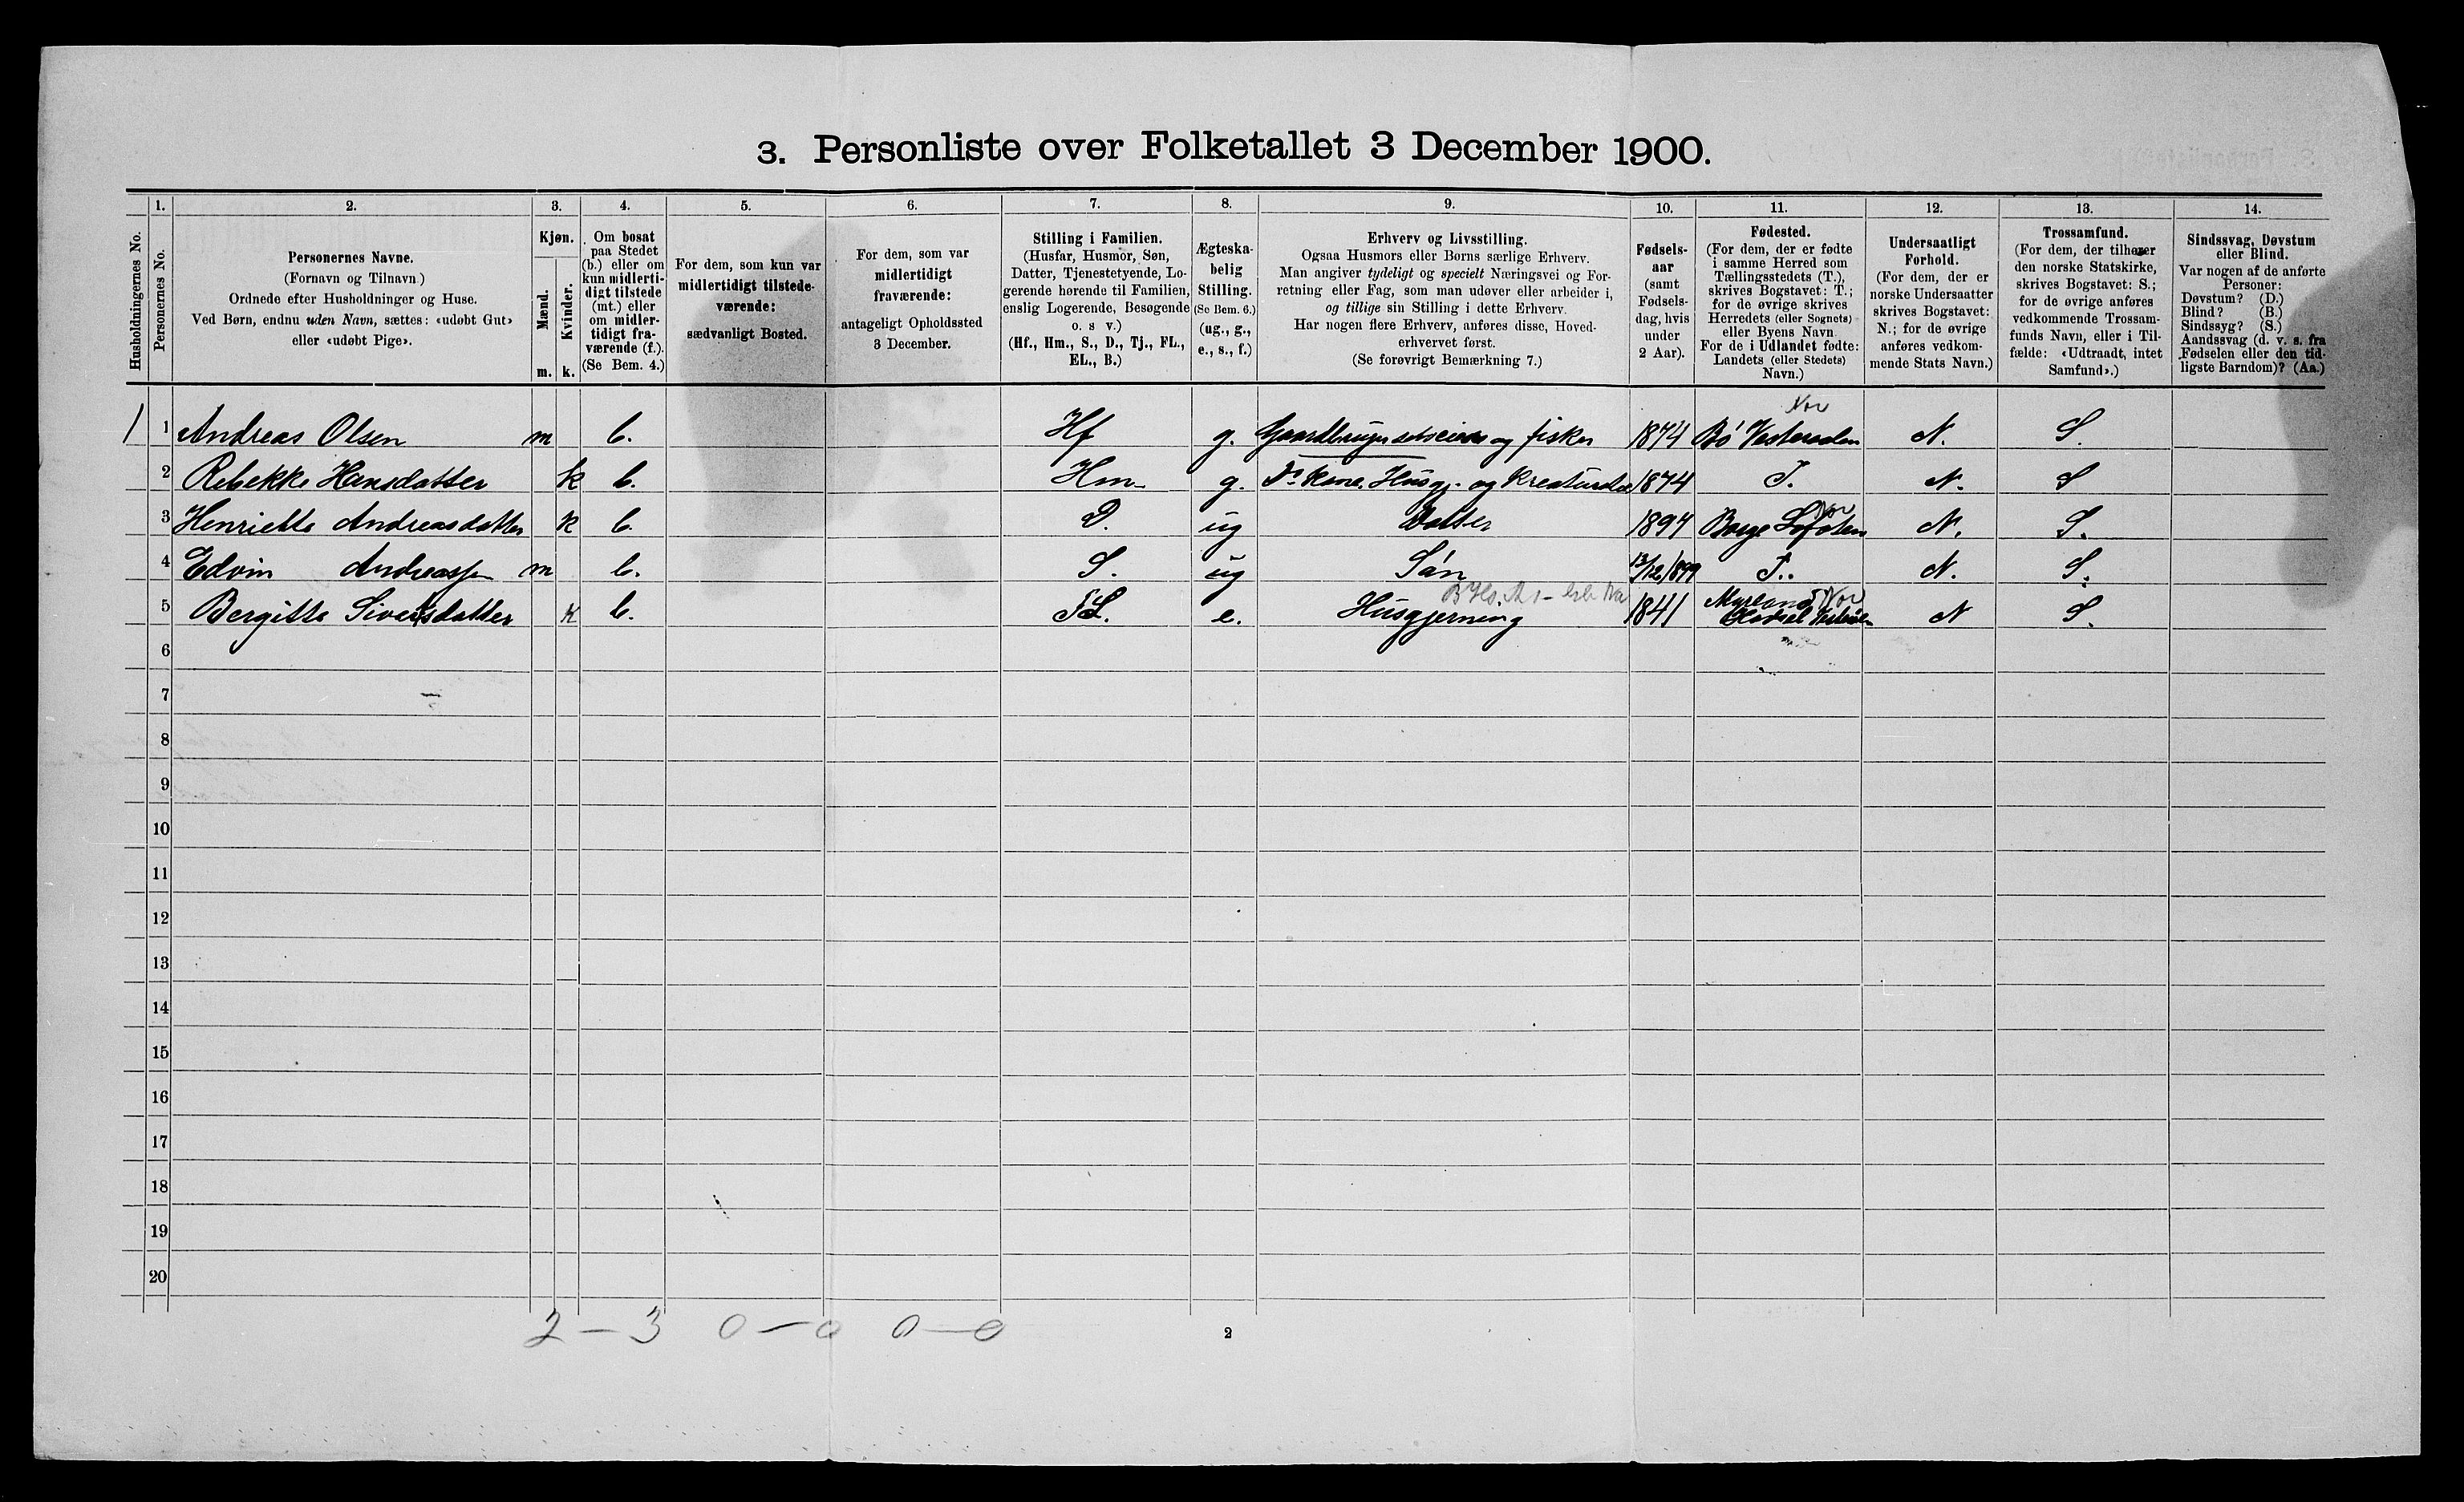 3. Personliste over Folketallet 3 December 1900.
Husholdningernes No.
1. Personernes No.
2. Personernes Navne.
(Fornavn og Tilnavn.)
Ordnede efter Husholdninger og Huse.
Ved Børn, endnu uden Navn, sættes: «udøbt Gut»
eller «udøbt Pige».
3. Kjøn.
Mænd. m.
Kvinder. k.
4. Om bosat
paa Stedet
(b.) eller om
kun midlerti-
digt tilstede
(mt.) eller
om midler-
tidigt fra-
værende (f.).
(Se Bem. 4.)
5. For dem, som kun var
midlertidigt tilstede-
værende:
sædvanligt Bosted.
6. For dem, som var
midlertidigt
fraværende:
antageligt Opholdssted
3 December.
7. Stilling i Familien.
(Husfar, Husmor, Søn,
Datter, Tjenestetyende, Lo-
gerende hørende til Familien,
enslig Logerende, Besøgende
o. s v.)
(Hf., Hm., S., D., Tj., FL.,
EL., B.)
8. Ægteska-
belig
Stilling.
(Se Bem. 6.)
(ug., g.,
e., s., f.)
9. Erhverv og Livsstilling.
Ogsaa Husmors eller Børns særlige Erhverv.
Man angiver tydeligt og specielt Næringsvei og For-
retning eller Fag, som man udøver eller arbeider i,
og tillige sin Stilling i dette Erhverv.
Har nogen flere Erhverv, anføres disse, Hoved-
erhvervet først.
(Se forøvrigt Bemærkning 7.)
10. Fødsels-
aar
(samt
Fødsels-
dag, hvis
under
2 Aar).
11. Fødested.
(For dem, der er fødte
i samme Herred som
Tællingsstedets (T.),
skrives Bogstavet: T.;
for de øvrige skrives
Herredets (eller Sognets)
eller Byens Navn.
For de i Udlandet fødte:
Landets (eller Stedets)
Navn.)
12. Undersaatligt
Forhold.
(For dem, der er
norske Undersaatter
skrives Bogstavet:
N.; for de øvrige
anføres vedkom-
mende Stats Navn.)
13. Trossamfund.
(For dem, der tilhører
den norske Statskirke,
skrives Bogstavet: S.;
for de øvrige anføres
vedkommende Trossam-
funds Navn, eller i Til-
fælde: «Udtraadt, intet
Samfund».)
14. Sindssvag, Døvstum
eller Blind.
Var nogen af de anførte
Personer:
Døvstum? (D.)
Blind? (B.)
Sindssyg? (S.)
Aandssvag (d. v. s. fra
Fødselen eller den tid-
ligste Barndom)? (Aa.)
Nor
1 1 Andreas Olsen m b. Hf g. Gaardbruger selveier og fisker 1874 Bö Vesteraalen N. S.
2 Rebekke Hansdatter k b. Hm g. Do Kone. Husgj. og Kreaturstel 1874 T. N. S
Nor
3 Henriette Andreasdatter k b. D. ug Datter 1894 Borge Lofoten N. S.
4 Edvin Andreassen m b. S. ug Sön 13/12 1899 T. N. S.
Nor
5 Bergitte Siversdatter k b. e. Husgjerning 1841 Hadsel N S.
6
7
8
9
10
11
12
13
14
15
16
17
18
19
20
2 — 3 0 — 0 0 — 0
2